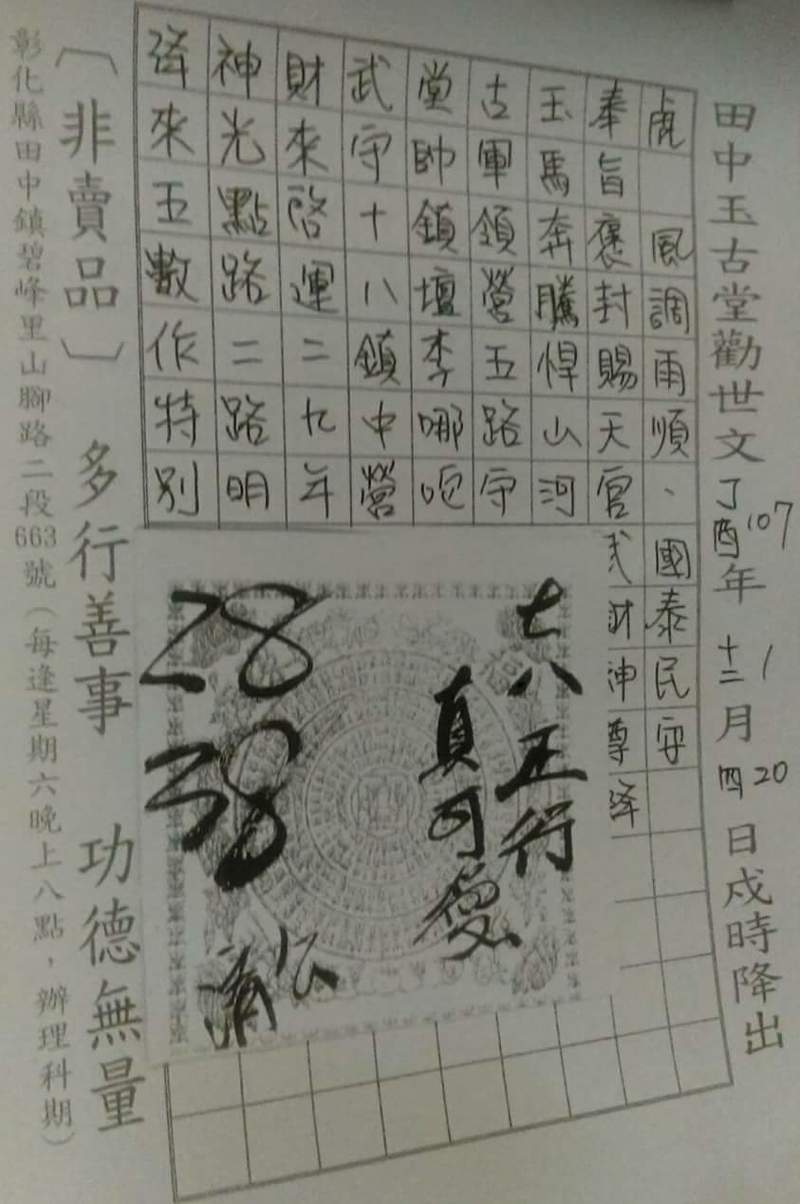 田中玉古堂勸世文 丁酉107年 十二1月 四20日戍時降出
虎 風調雨順、國泰民安
奉旨褒封賜天官武財神尊降
玉馬奔騰悍山河
古軍領營五路守
堂帥鎮壇李哪吒
武守十八鎮中營
財來啓運二九年
神光點路二路明
來五數作特別
七八正行
真可愛
28
38
濟公
〔非賣品〕 多行善事 功德無量
彰化縣田中鎮碧峰里山腳路二段663號(每逢星期六晚上八點,辦理科期)